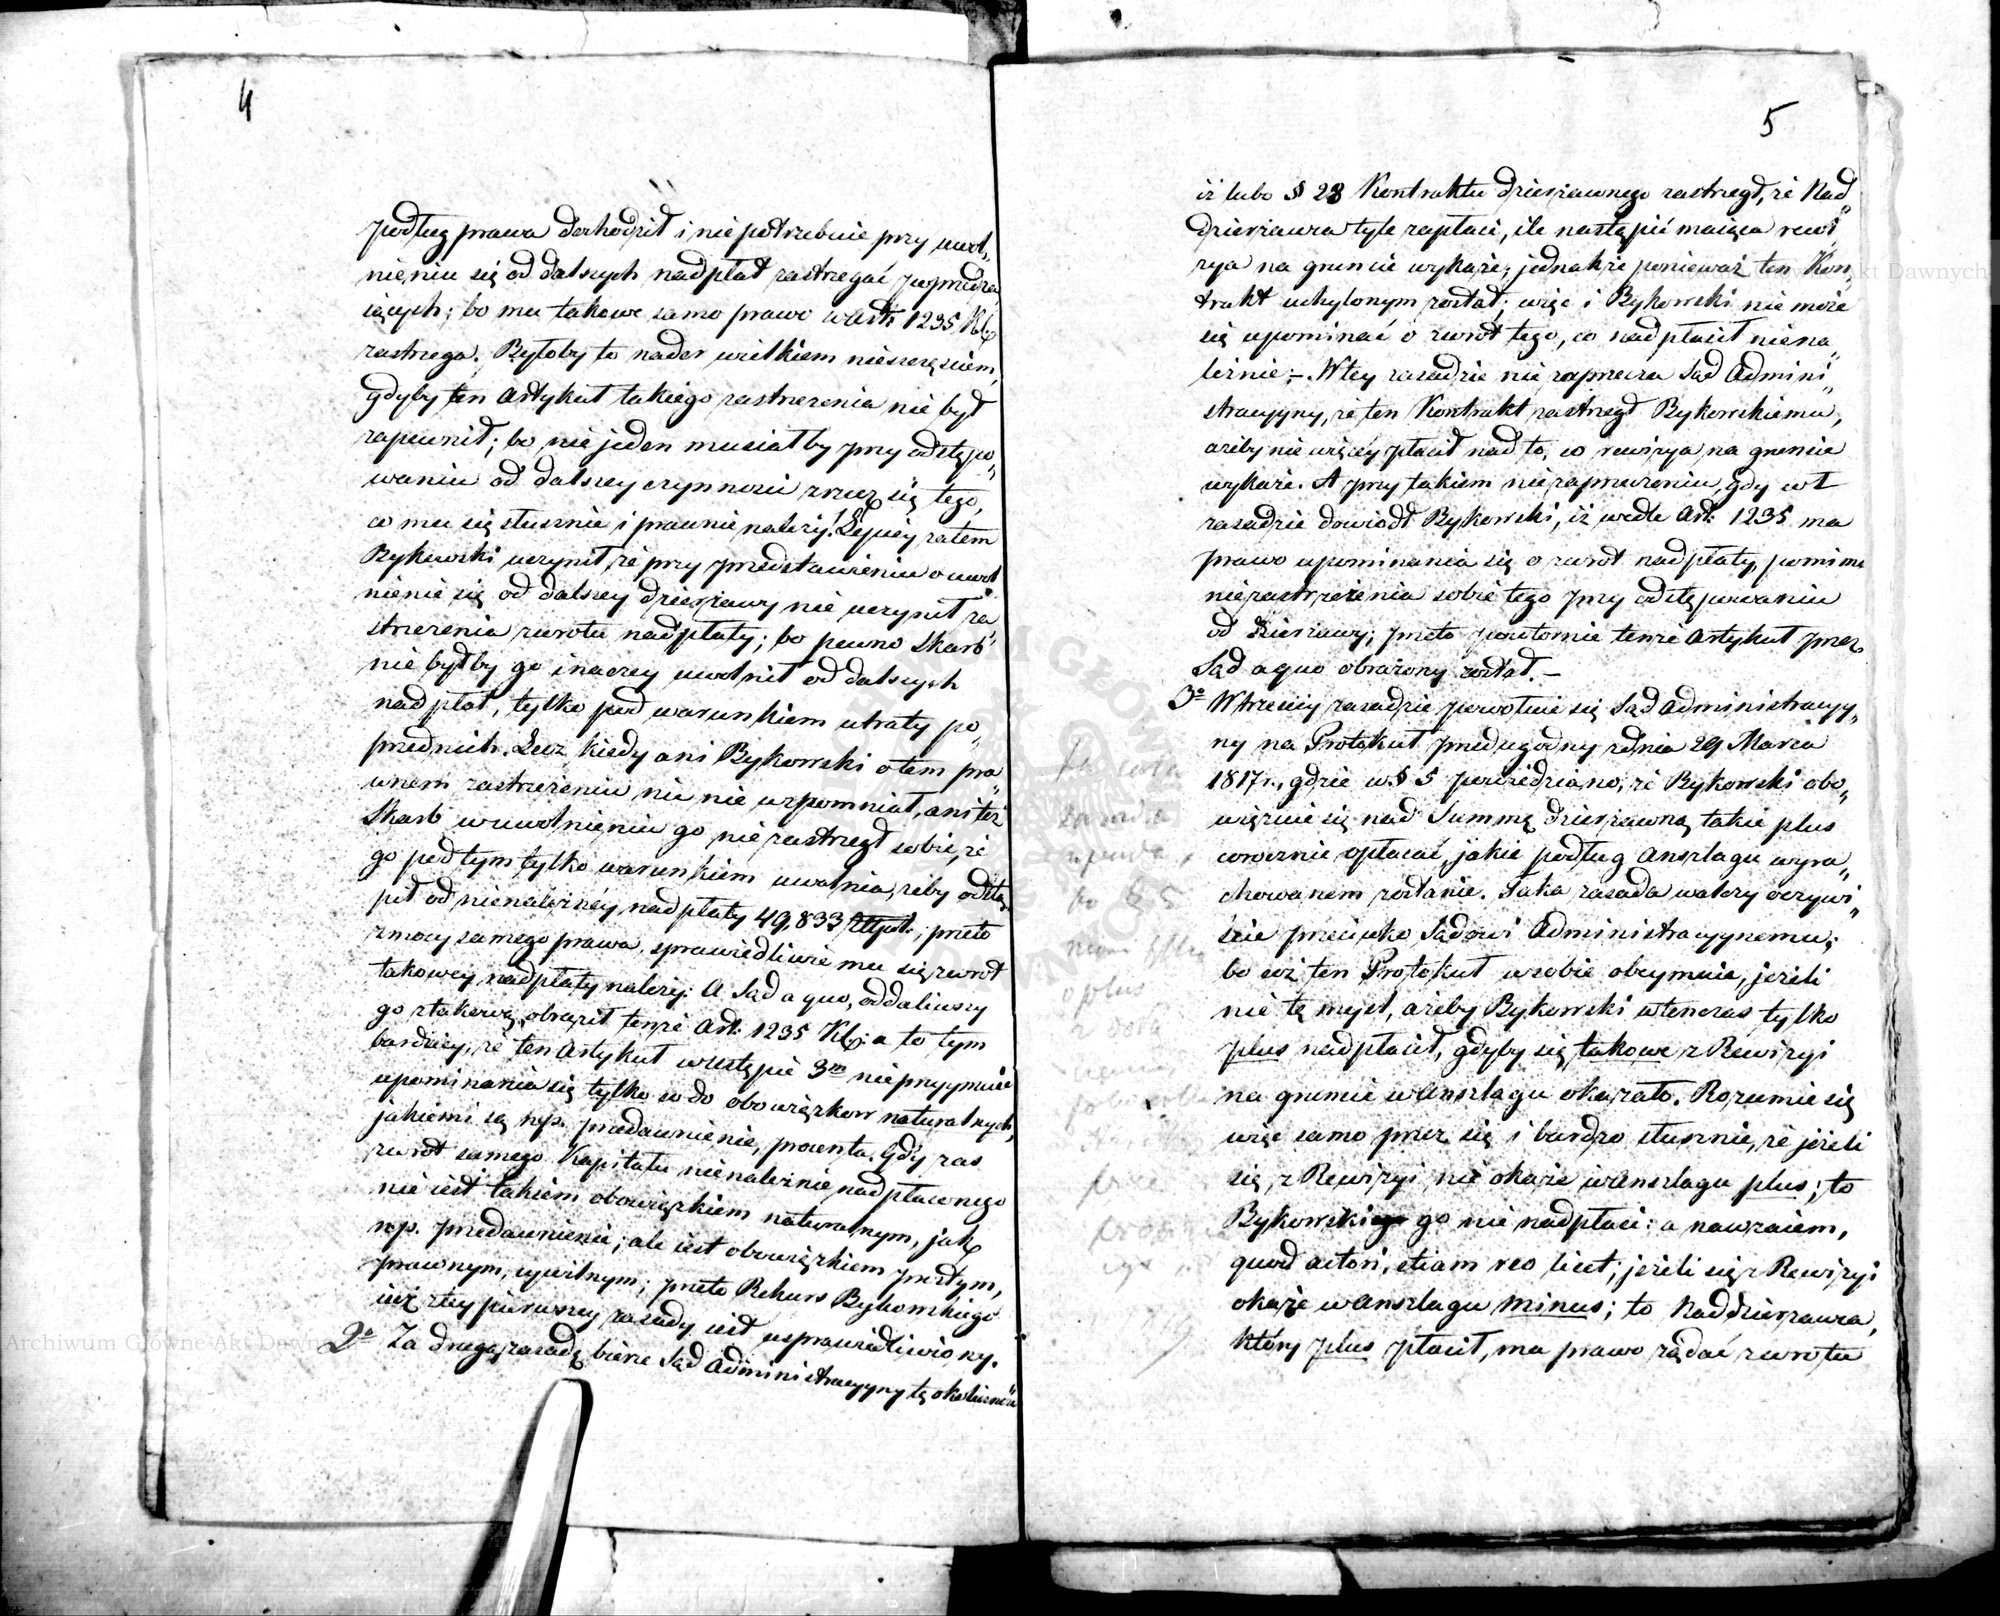 4
podług prawa dochodził i niepotrzebnie przy uwol„
nieniu się od dalszych nadpłat zastrzegać poprzedza
iących; bo mu takowe samo prawo w Art: 1235 KC
zastrzega. Byłoby to nader wielkiem nieszczęściem,
gdyby ten Artykuł takiego zastrzeżenia nie był
zapewnił; bo nie jeden musiałby przy odstępo„
waniu od dalszey czynności zrzec się tego,
co mu się słusznie i prawnie należy! Lepiey zatem
Bykowski uczynił, że przy przedstawieniu o uwol
nienie się od dalszey dzierżawy nie uczynił za
strzeżenia zwrotu nadpłaty; bo pewno Skarb
nie byłby go inaczey uwolnił od dalszych
nadpłat, tylko pod warunkiem utraty po„
przednich. Lecz kiedy ani Bykowski o tem pra„
wnem zastrzeżeniu nic nie wspomniał, ani też
Skarb w uwolnieniu go nie zastrzegł sobie, że
go pod tym tylko warunkiem uwalnia, żeby odstą„
pił od nienależnéy nadpłaty 49,833 Złpol:; przeto
z mocy samego prawa, sprawiedliwie mu się zwrot
takowey nadpłaty należy: A Sąd a quo, oddaliwszy
go z takową, obraził tenże Art: 1235 KC: a to tym
bardziey, że ten Artykuł w ustępie 3m nieprzyymuie
upominania się tylko co do obowiązkow naturalnych,
jakiemi są np. przedawnienie, procenta. Gdy zas
zwrot samego Kapitału nienależnie nadpłaconego
nie iest takiem obowiązkiem naturalnym, jak
np. przedawnienie; ale iest obowiązkiem prostym,
prawnym, cywilnym; przeto Rekurs Bykowskiego
iuż z tey pierwszey zasady iest usprawiedliwiony.
2o Za drugą zasadę bierze Sąd Administracyyny tę okoliczność
5
iż lubo § 28 Kontraktu dzierżawnego zastrzegł, że Nad„
dzierżawca tyle zapłaci, ile nastąpić maiąca rewi„
zya na gruncie wykaże; jednakże ponieważ ten Kon„
trakt uchylonym został; więc i Bykowski nie może
się upominać o zwrot tego, co nadpłacił niena„
leżnie; –. W tey zasadzie nie zaprzecza Sąd Admini„
stracyyny, że ten Kontrakt zastrzegł Bykowskiemu,
ażeby nie więcéy płacił nad to, co rewizya na gruncie
wykaże. A przy takiem niezaprzeczeniu, gdy w 1
zasadzie dowiodł Bykowski, iż wedle Art: 1235 ma
prawo upominania się o zwrot nadpłaty, pomimo
niezastrzeżenia sobie tego przy odstępowaniu
od dzierżawy; przeto powtornie tenże Artykuł przez
Sąd a quo obrażony został. –
3o W trzeciéy zasadzie powołuie się Sąd Administracyy„
ny na Protokuł przedugodny z dnia 29 Marca
1817 r., gdzie w § 5 powiedziano, że Bykowski obo„
więzuie się nad Summę dzierżawną takie plus
corocznie opłacać, jakie podług Anszlagu wyra„
chowanem zostanie. Taka zasada walczy oczywi„
ście przeciwko Sądowi Administracyynemu;
bo coż ten Protokuł w sobie obeymuie, jeżeli
nie tę mysl, ażeby Bykowski wtenczas tylko
plus nadpłacił, gdyby się takowe z Rewizyi
na gruncie w Anszlagu okazało. Rozumie się
więc samo przez się i bardzo słusznie, że jeżeli
się z Rewizyi nie okaże w Anszlagu plus; to
Bykowski go nie nadpłaci: a nawzaiem,
quod actori, etiam reo licet; jeżeli się z Rewizyi
okaże w Anszlagu minus; to Naddzierżawca,
który plus płacił, ma prawo żądać zwrotu
Archiwum Główne Akt Dawnych